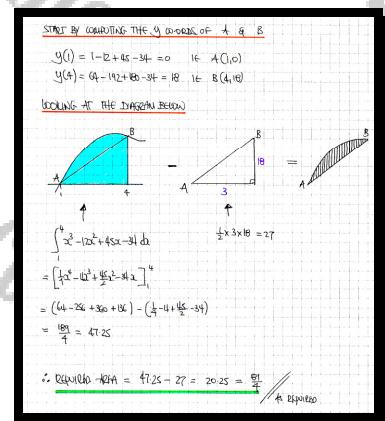 START BY COMPUTING THE y CO-ORDS OF A & B
y(1) = 1-12+45-34 = 0 IE A(1,0)
y(4) = 64-192+180-34 = 18 IE B(4,18)
LOOKING AT THE DIAGRAM BELOW
A B 1 4
-
A B 18 3
=
A B
∫₁⁴ x³-12x²+45x-34 dx
½ × 3 × 18 = 27
= [¼x⁴-4x³+45/2x²-34x]₁⁴
= (64-256+360-136) - (¼-4+45/2-34)
= 189/4 = 47.25
∴ REQUIRED AREA = 47.25 - 27 = 20.25 = 81/4
AS REQUIRED